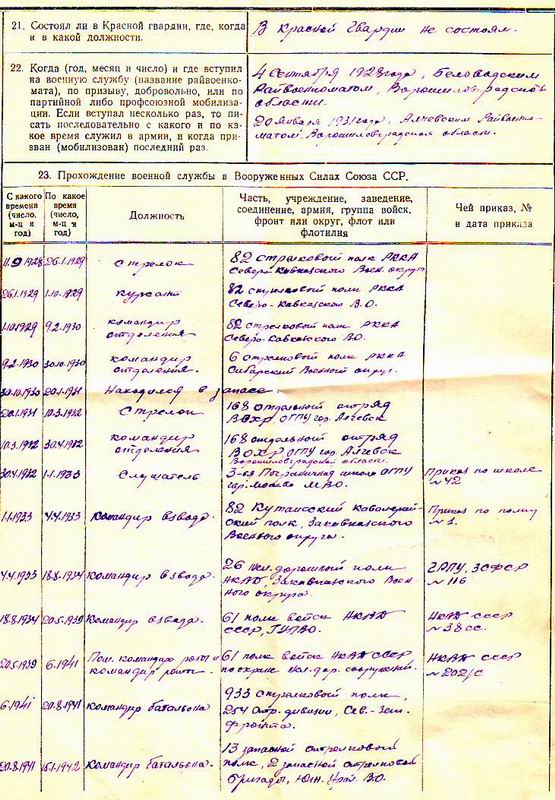 21. Состоял ли в Красной гвардии, где, когда
и в какой должности.
В Красной Гвардии не состоял.
22. Когда (год, месяц и число) и где вступил
на военную службу (название райвоенко-
мата), по призыву, добровольно, или по
партийной либо профсоюзной мобилиза-
ции. Если вступал несколько раз, то пи-
сать последовательно с какого и по ка-
кое время служил в армии, и когда при-
зван (мобилизован) последний раз.
4 Сентября 1928 года, Беловодским
Райвоенкоматом, Ворошиловградской
области.
20 Января 1931 года, Алчевским Райвоенко-
матом, Ворошиловградской области.
23. Прохождение военной службы в Вооруженных Силах Союза ССР.
С какого
времени
(число,
м-ц и
год)
По какое
время
(число,
м-ц и
год)
Должность
Часть, учреждение, заведение,
соединение, армия, группа войск,
фронт или округ, флот или
флотилия
Чей приказ, №
и дата приказа
11.9.1928 26.1.1929 Стрелок 82 стрелковый полк РККА
Северо-Кавказского Воен. округ.
26.1.1929 1.10.1929 Курсант 82 стрелковый полк РККА
Северо-Кавказского В.О.
1.10.1929 9.2.1930 командир
отделения 82 стрелковый полк РККА
Северо-Кавказского В.О.
9.2.1930 30.10.1930 командир
отделения. 6 стрелковый полк РККА
Сибирский Военный округ.
30.10.1930 20.1.1931 Находился в запасе.
20.1.1931 10.3.1932 Стрелок 168 отдельный отряд
ВОХР ОГПУ гор. Алчевск
10.3.1932 30.4.1932 командир
отделения 168 отдельный отряд
ВОХР ОГПУ гор. Алчевск
Ворошиловградской области.
30.4.1932 1.1.1933 Слушатель 3-ья Пограничная школа ОГПУ
гор. Москва МВО. Приказ по школе
№ 42
1.1.1933 4.4.1933 Командир взвода. 82 Кутаисский кавалерий-
ский полк, Закавказского
Военного округа. Приказ по полку
№ 1.
4.4.1933 18.8.1934 Командир взвода. 26 жел. дорожный полк
НКВД Закавказского Воен-
ного округа. ЗСФСР
№ 116
18.8.1934 20.5.1939 Командир взвода. 61 полк войск НКВД
СССР, НКВД СССР
№ 38 сс.
20.5.1939 6.1941 Пом. командира роты и
командир роты. 61 полк войск НКВД СССР
по охране жел. дор. сооружений. НКВД СССР
№ 202/с
6.1941 20.8.1941 Командир батальона 933 стрелковый полк,
254 стр. дивизии, Сев.-Зап.
фронта.
20.8.1941 15.1.1942 Командир батальона. 13 запасной стрелковый
полк, 2 запасной стрелковой
бригады, Юж. Урал. В.О.